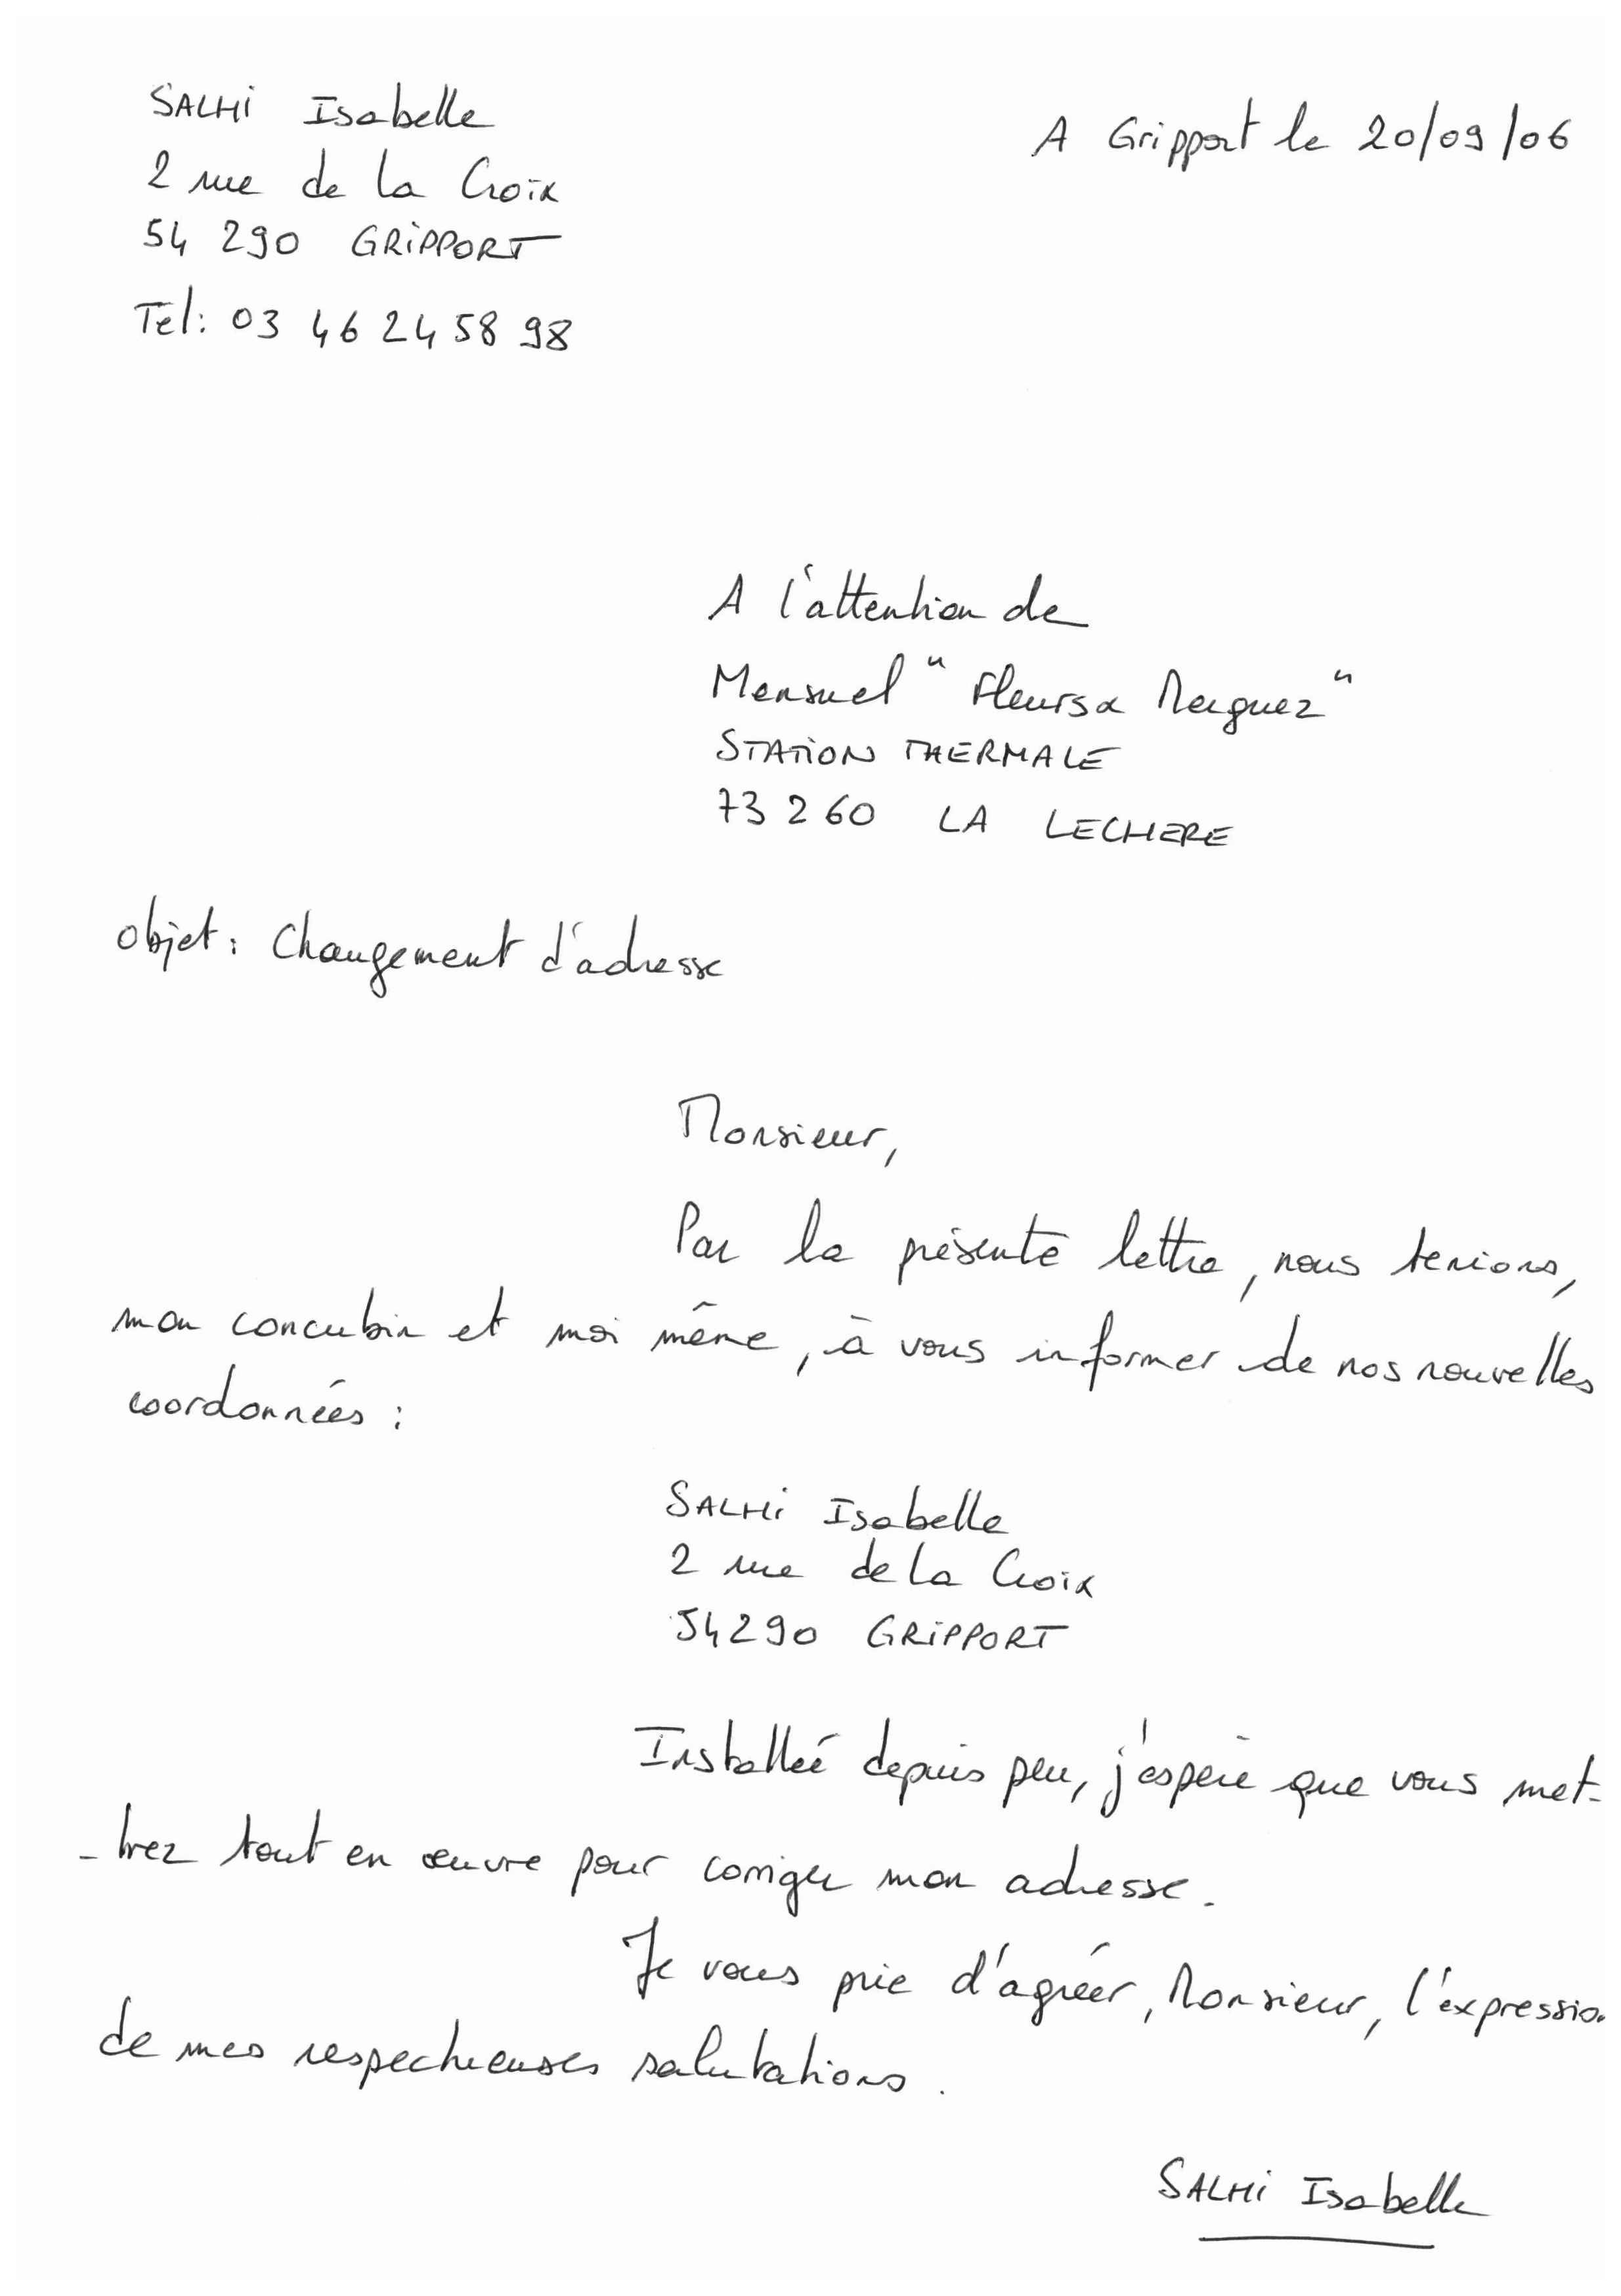 SALHI Isabelle
A Gripport le 20/09/06
2 rue de la Croix
54 290 GRIPPORT
Tel: 03 46 24 58 98
A l'attention de
Mensuel "Fleurs & Merguez"
STATION THERMALE
73 260 LA LECHERE
Objet : Changement d'adresse
Monsieur,
Par la présente lettre, nous tenions,
mon concubin et moi même, à vous informer de nos nouvelles
coordonnées :
SALHI Isabelle
2 rue de la Croix
54290 GRIPPORT
Installée depuis peu, j'espère que vous met-
-trez tout en œuvre pour corriger mon adresse.
Je vous prie d'agréer, Monsieur, l'expression
de mes respectueuses salutations.
SALHI Isabelle